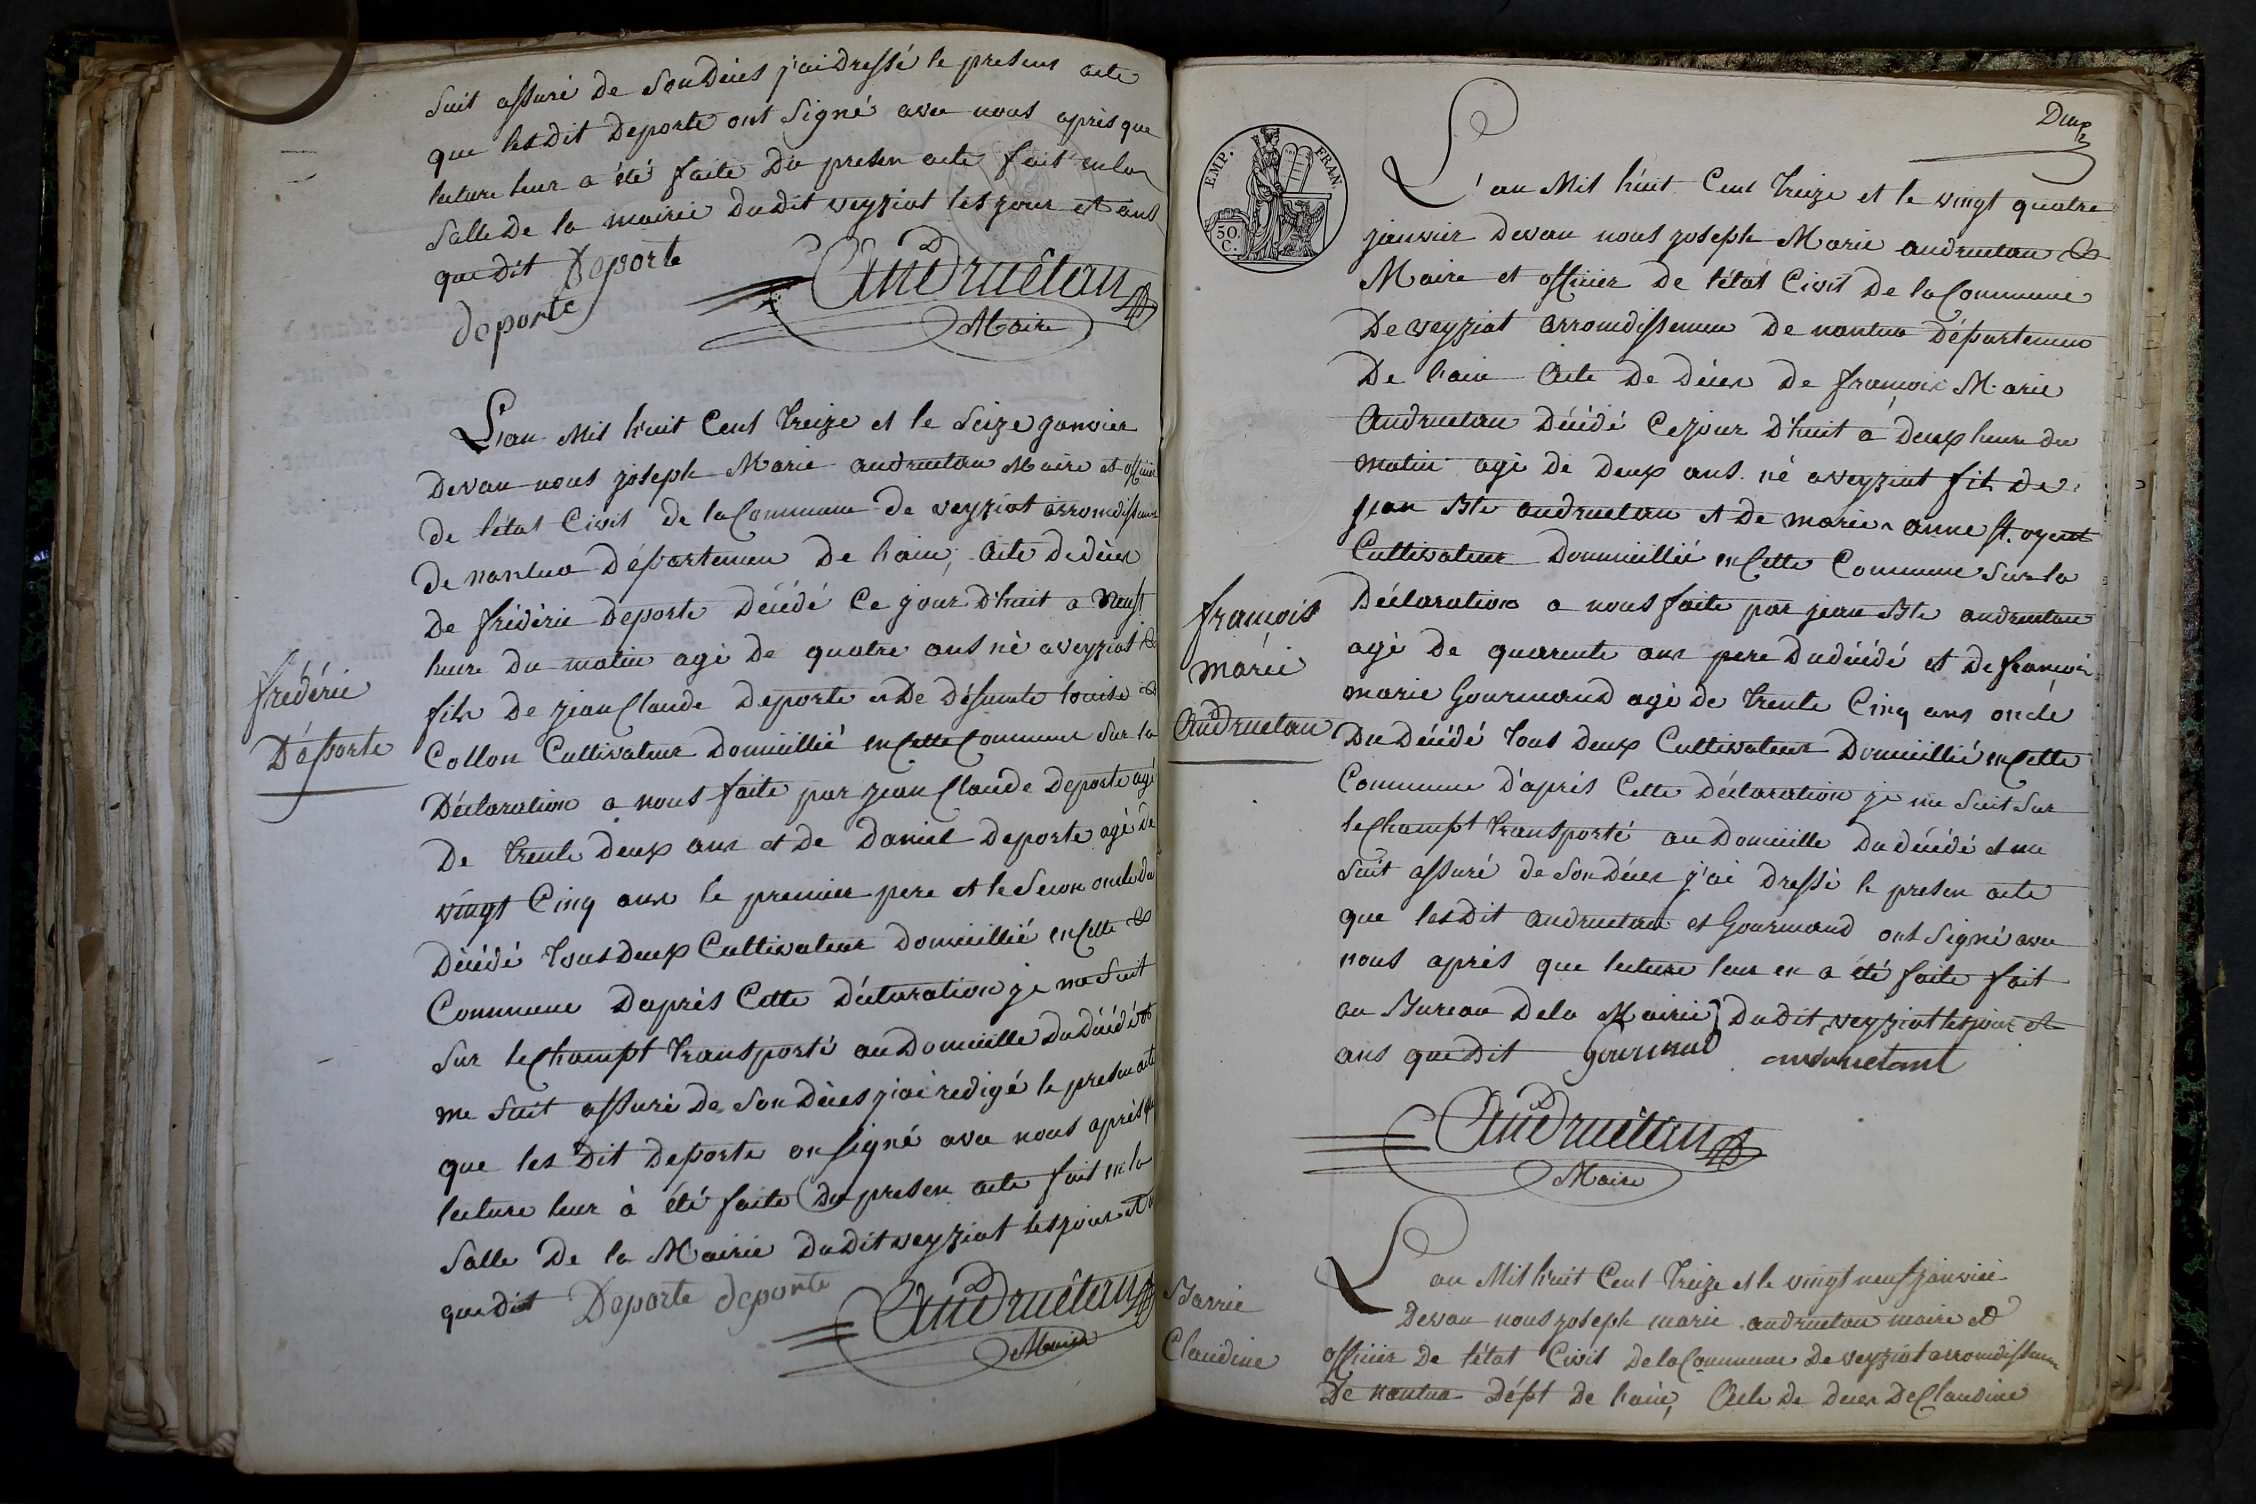 Suit assuré de Son Déces j'ai Dressé le presens acte
que les Dit Deporte ont Signé avec nous après que
lecture leur a été faite Du presen acte fait en la
Salle De la mairie Dudit veyziat les jour et ans
que Dit Deporte
deporte
Andruétan
Maire
L'an Mil huit Cent Treize et le Seize janvier
Devan nous joseph Marie andruetan Maire et officier
de l'état Civil de la Commune de veyziat arrondissem
De nantua Département De l'ain, Acte de déces
De frédéric Deporte Décédé Ce jour D'huit a neuf
heure Du matin agé De quatre ans né a veyziat
fils De jean Claude Deporte et De Défunte louise
Collon Cultivateur Domicillié en Cette Commune Sur la
Déclaration a nous faite par jean Claude Deporte agé
De Trente Deux ans et De Daniel Deporte agé De
vingt Cinq ans le premier pere et le Secon oncle du
Décédé Tous Deux Cultivateur Domicillié en Cette
Commune Daprès Cette Déclaration je me Suit
Sur le Champt Transporté au Domicille Du Décédé et
me Suit assuré De Son Déces j'ai redigé le presen acte
que les Dit Deporte on Signé avec nous après que
lecture leur à été faite Du presen acte fait en la
Salle De la Mairie Du Dit veyziat les jour et
que Dit Deporte deporte
Andruétan
Maire
frédéric
Déporte
Deux
EMP. FRAN.
50. C.
L'an Mil huit Cent Treize et le vingt quatre
janvier Devan nous joseph Marie andruetan
Maire et officier De l'état Civil De la Commune
De veyziat arrondissemen De nantua Départemen
De l'ain Acte De Déces De françois Marie
Andruetan Décédé Ce jour D'huit a Deux heure du
matin agé De Deux ans né a veyziat fils De
jean Bte andruetan et De marie anne St. oyent
Cultivateur Domicillié en Cette Commune Sur la
Déclaration a nous faite par jean Bte andruetan
agé De quarente ans pere Du décédé et De françois
marie Gourmand agé De Trente Cinq ans oncle
Du Décédé Tous Deux Cultivateur Domicillié en Cette
Commune D'après Cette Déclaration je me Suit Sur
le Champt Transporté au Domicille Du décédé et me
Suit assuré De Son Déces j'ai Dressé le presen acte
que les Dit andruetan et Gourmand ont Signé avec
nous après que lecture leur en a été faite fait
au Bureau De la Mairie Du Dit veyziat les jour et
ans que Dit gourmand andruetant
Andruétan
Maire
françois
marie
Andruetan
L'an Mil huit Cent Treize et le vingt neuf janvier
Devan nous joseph marie andruetan maire et
officier De l'état Civil De la Commune De veyziat arrondissem
De nantua Dépt De l'ain, Acte De Deces De Claudine
Barrie
Claudine